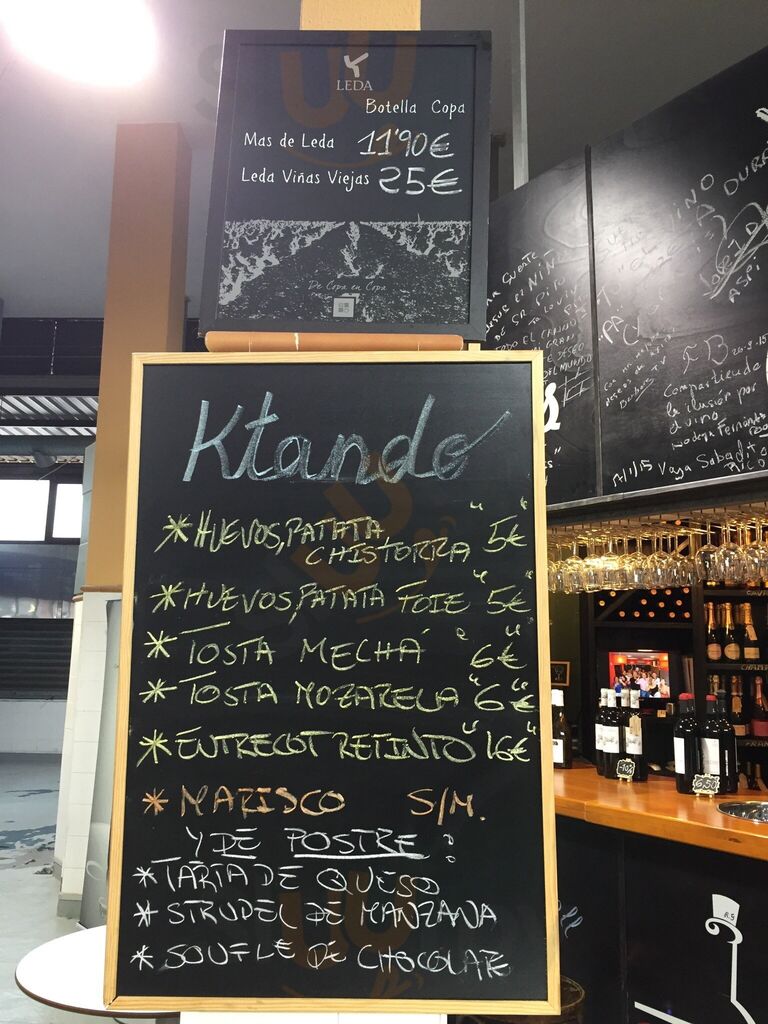 LEDA
Botella Copa
Mas de Leda 11'90€
Leda Viñas Viejas 25€
De Copa en Copa
Ktando
*HUEVOS, PATATA,
CHISTORRA "5€"
*HUEVOS, PATATA FOIE "5€"
*TOSTA MECHÁ "6€"
*TOSTA MOZARELA "6€"
*ENTRECOT RETINTO "16€"
*MARISCO S/M.
Y DE POSTRE:
*TARTA DE QUESO
*STRUDEL DE MANZANA
*SOUFLE DE CHOCOLATE
VINO
DEL MUNDO
Compartiendo
la ilusión por
el vino
Bodega Fernández
Vaya Sabadito
6,50